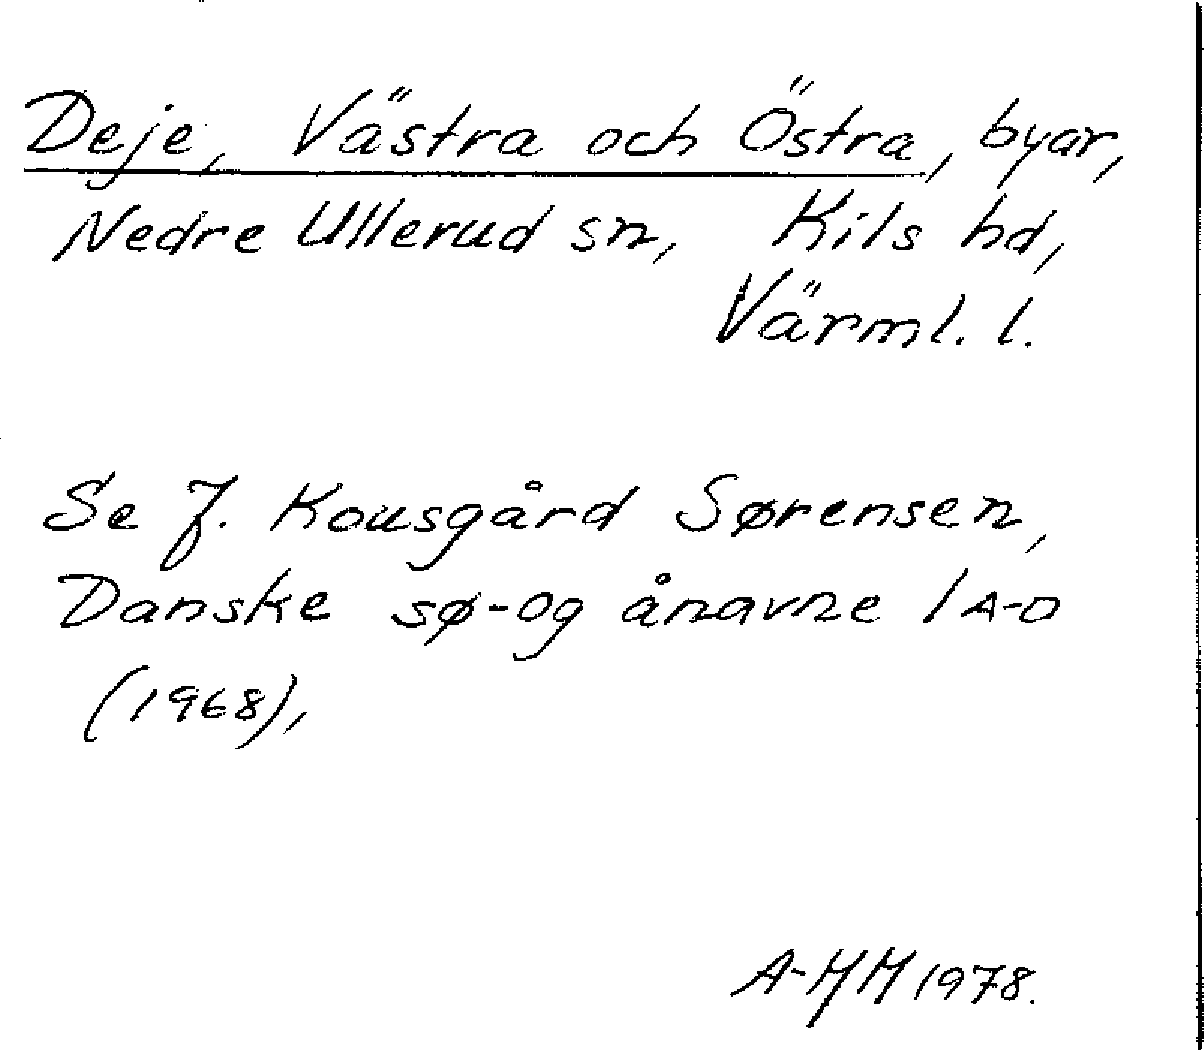 Deje, Västra och Östra, byar,
Nedre Ullerud sn, Kils hd,
Värml. l.
Se J. Kousgård Sørensen,
Danske sø- og ånavne 1 A-D
(1968),
A-MM 1978.